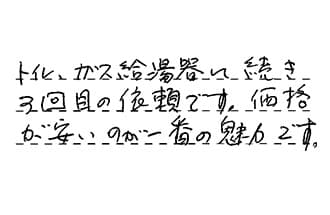 トイレ、ガス給湯器に続き
3回目の依頼です。価格
が安いのが一番の魅力です。